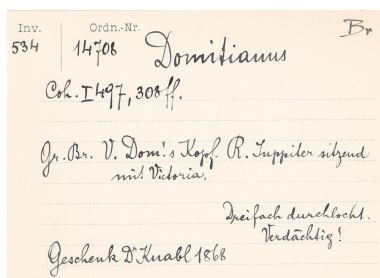 Inv. Ordn.-Nr. Br
534 14708 Domitianus
Coh. I 497, 308 ff.
Gr. Br. V. Dom's Kopf. R. Juppiter sitzend
mit Victoria.
Dreifach durchlocht.
Verdächtig!
Geschenk Dr Knabl 1868